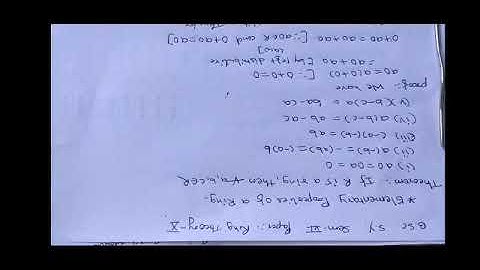 B.Sc S.Y Sem-VI Paper:- Ring Theory-X
* Elementary Properties of a Ring-
Theorem:- If R is a ring, then ∀ a,b,c∈R
(i) a0 = 0a = 0
(ii) a(-b) = -(ab) = (-a)b
(iii) (-a)(-b) = ab
(iv) a(b-c) = ab - ac
(v) (b-c)a = ba - ca
proof:- We have
a0 = a(0+0) [∵ 0+0=0
= a0 + a0 [by left distributive
law]
0+a0 = a0+a0 [∵ a0∈R and 0+a0=a0]